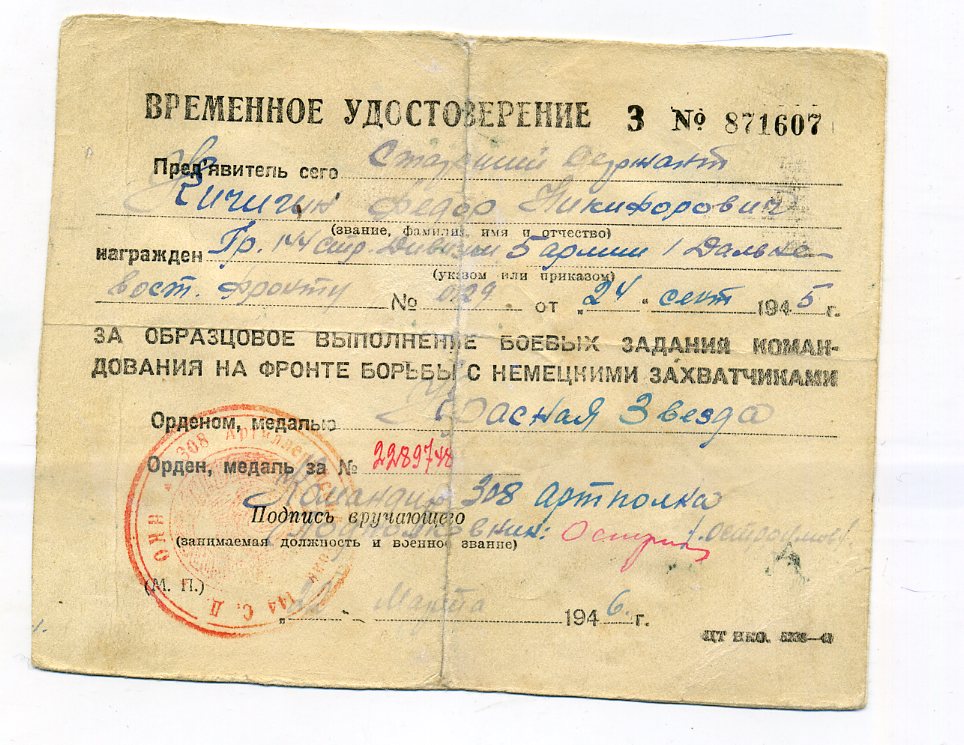 ВРЕМЕННОЕ УДОСТОВЕРЕНИЕ З № 871607
Пред'явитель сего Старший Сержант
Кичигин Федор Никифорович
(звание, фамилия, имя и отчество)
награжден Пр. 144 стр. Дивизии 5 армии 1 Дальне-
(указом или приказом)
вост. фронту № 029 от „24" сент 1945 г.
ЗА ОБРАЗЦОВОЕ ВЫПОЛНЕНИЕ БОЕВЫХ ЗАДАНИЯ КОМАН-
ДОВАНИЯ НА ФРОНТЕ БОРЬБЫ С НЕМЕЦКИМИ ЗАХВАТЧИКАМИ
Орденом, медалью Красная Звезда
Орден, медаль за № 2289748
Командир 308 артполка
Подпись вручающего
Подполковник: /.Остроумов/.
(занимаемая должность и военное звание)
(М. П.)
Марта 1946 г.
308 144 С. Д